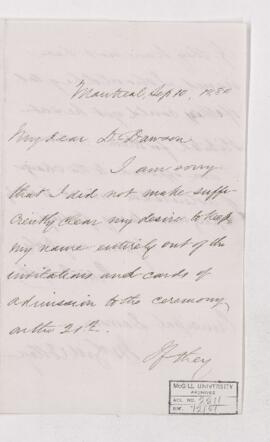 Montreal, Sep 10, 1880
My dear Dr Dawson
I am sorry
that I did not make suffi-
ciently clear my desire to keep
my name entirely out of the
invitations and cards of
admission to the ceremony
on the 21st.
If they
McGILL UNIVERSITY
ARCHIVES
ACC. NO. 2211
REF.